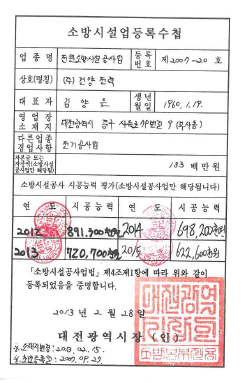 소방시설업등록수첩
업 종 명 전문소방시설공사업 등록번호 제2007-20호
상호(명칭) (주) 건양전력
대 표 자 김 양 은 생년월일 1960. 1. 19.
영업장소재지 대전광역시 중구
다른업종겸업사항 전기공사업
183 백만원
소방시설공사 시공능력 평가(소방시설공사업만 해당됩니다)
연 도 시공능력 연 도 시공능력
2012 891,300천원 2014 698,200천원
2013 720,700천원 2015 622,600천원
「소방시설공사업법」 제4조제1항에 따라 위와 같이
등록되었음을 증명합니다.
2013 년 2 월 28 일
대전광역시장 (인)